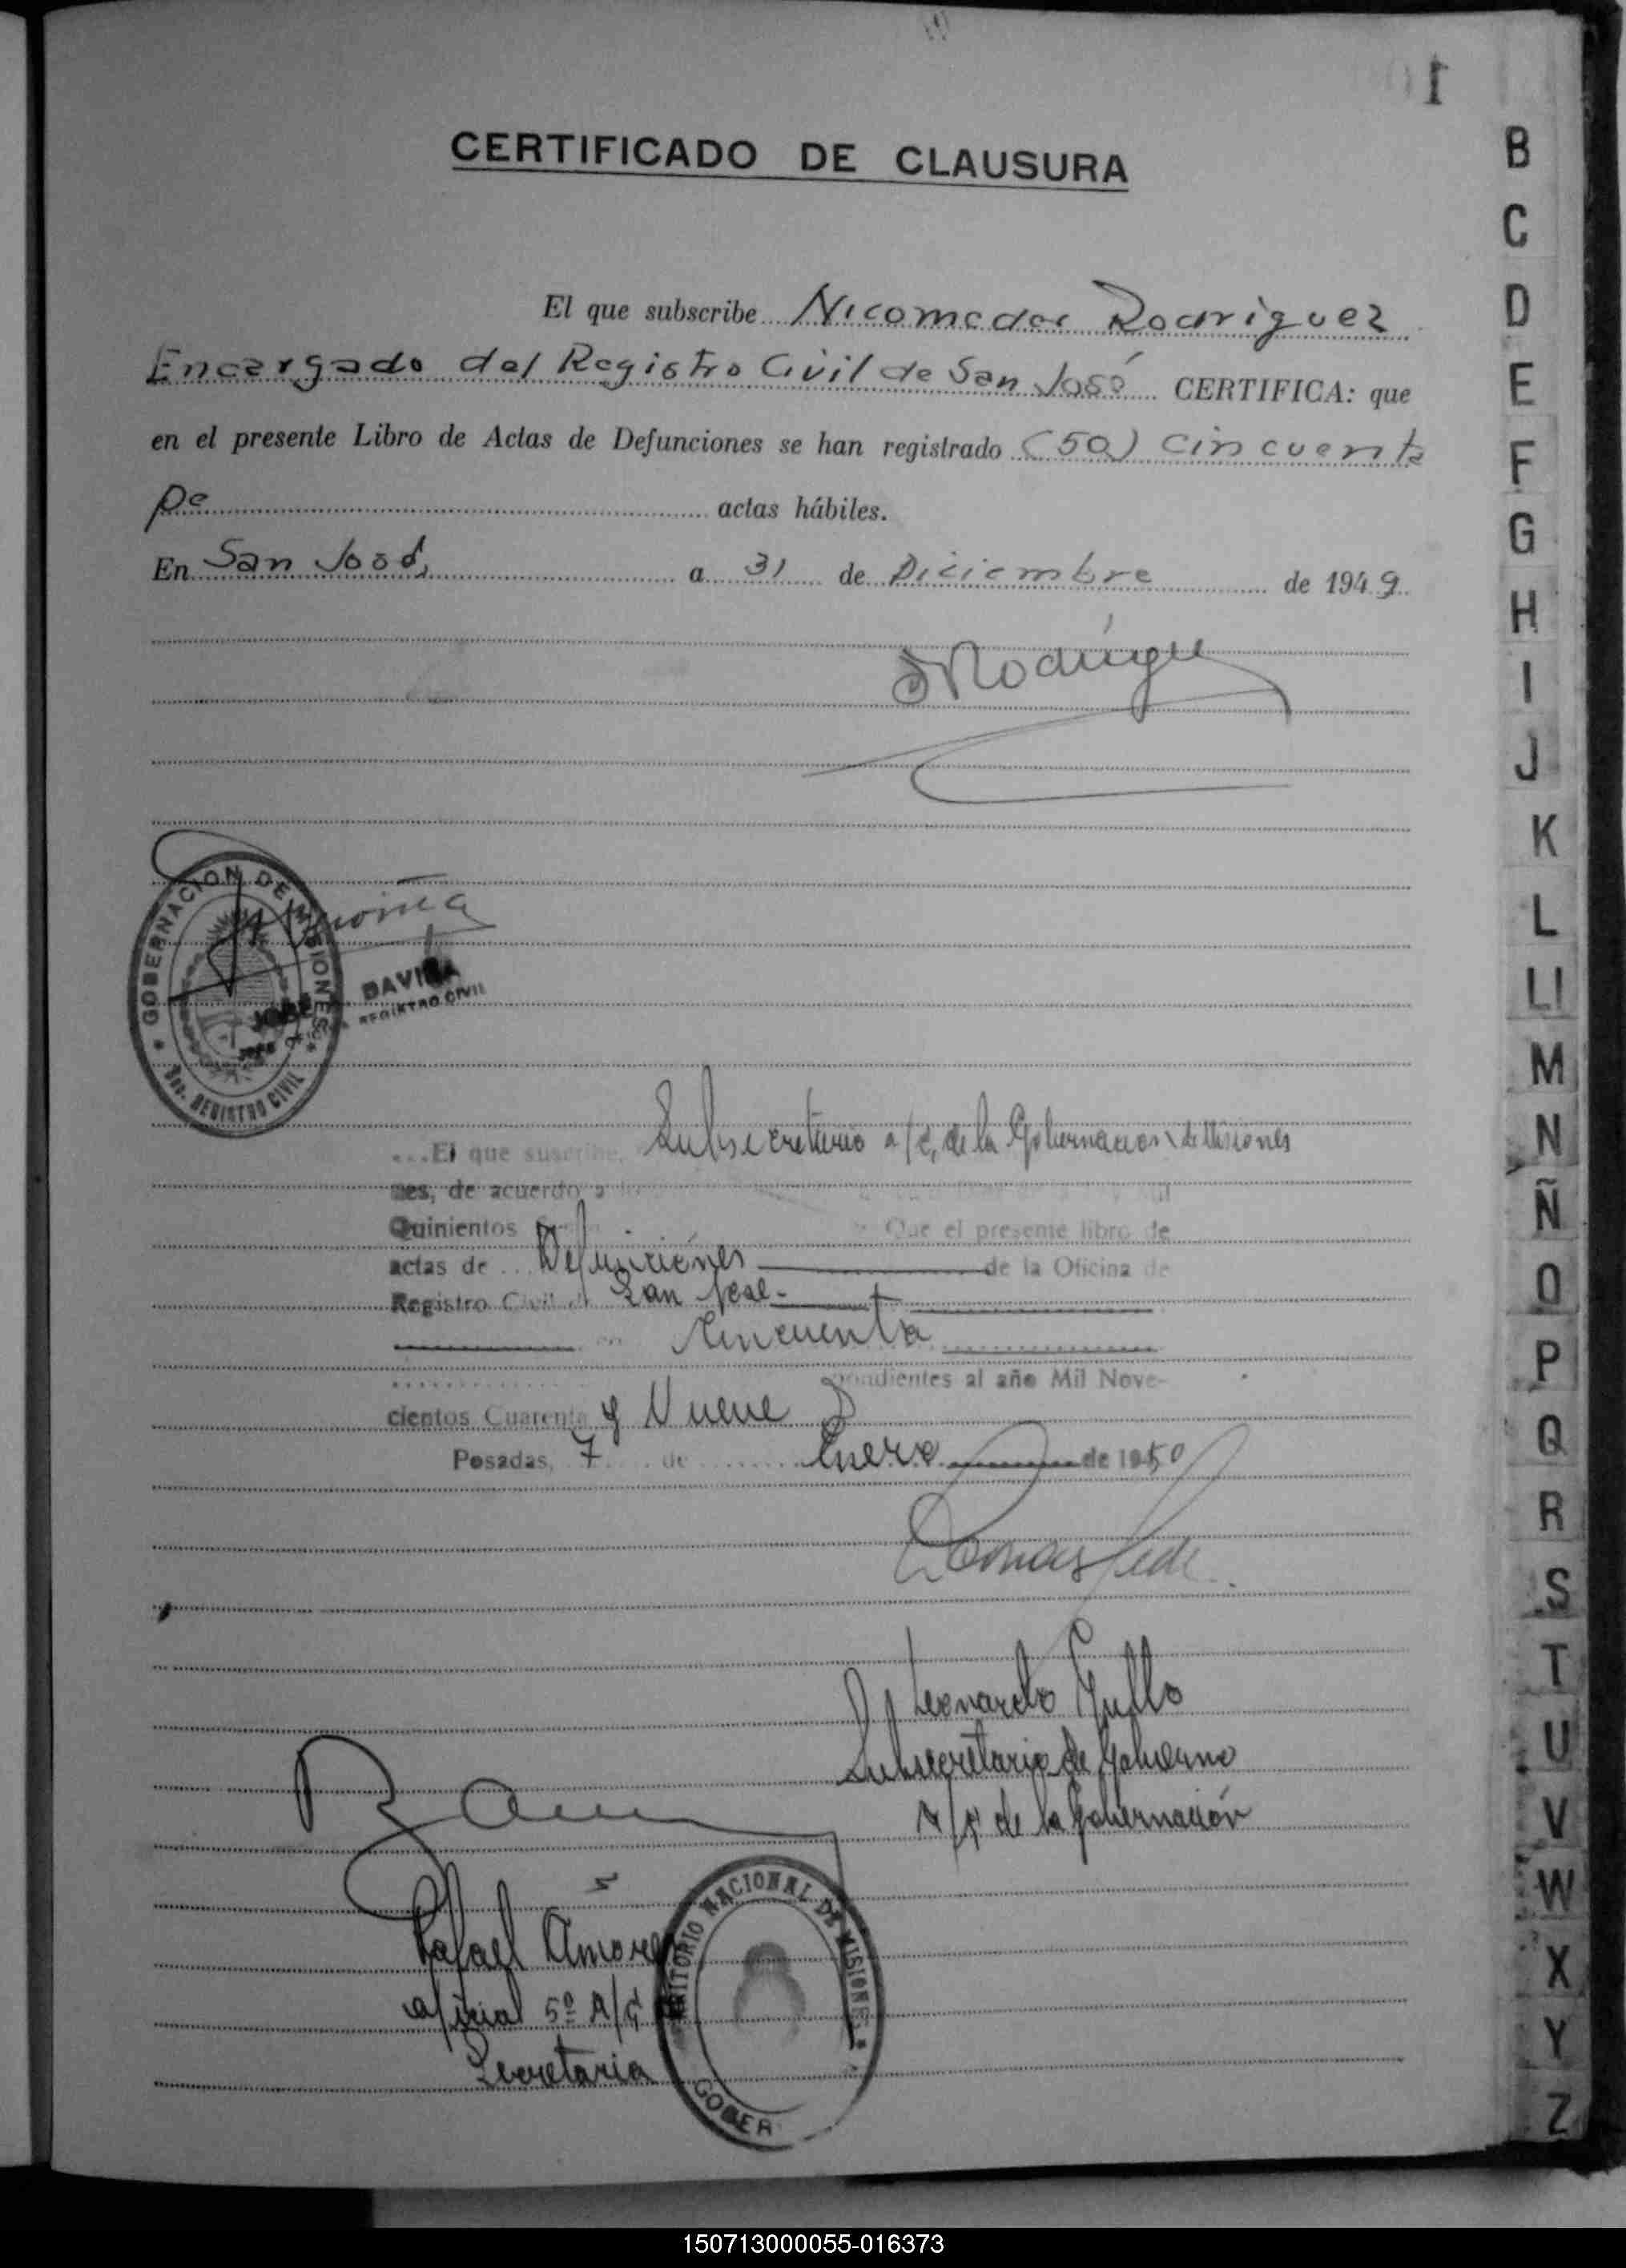 1
CERTIFICADO DE CLAUSURA
El que subscribe Nicomedes Rodriguez
Encargado del Registro Civil de San José CERTIFICA: que
en el presente Libro de Actas de Defunciones se han registrado (50) cincuenta
actas hábiles.
En San José, a 31 de Diciembre de 1949
GOBERNACION DE MISIONES
REGISTRO CIVIL
JOSE DAVIÑA
JEFE OFICINA REGISTRO CIVIL
...El que suscribe, Subsecretario a/c, de la Gobernacion de Misiones
nes, de acuerdo a
Quinientos Que el presente libro de
actas de Defunciones de la Oficina de
Registro Civil de San José.-
Cincuenta
pondientes al año Mil Nove-
cientos Cuarenta y Nueve
Posadas, 7 de Enero de 1950
Leonardo Gullo
Subsecretario de Gobierno
A/C de la Gobernación
Rafael Amores
Oficial 5º A/C
Secretaria
TERRITORIO NACIONAL DE MISIONES
GOBER
B
C
D
E
F
G
H
I
J
K
L
Ll
M
N
Ñ
O
P
Q
R
S
T
U
V
W
X
Y
Z
150713000055-016373